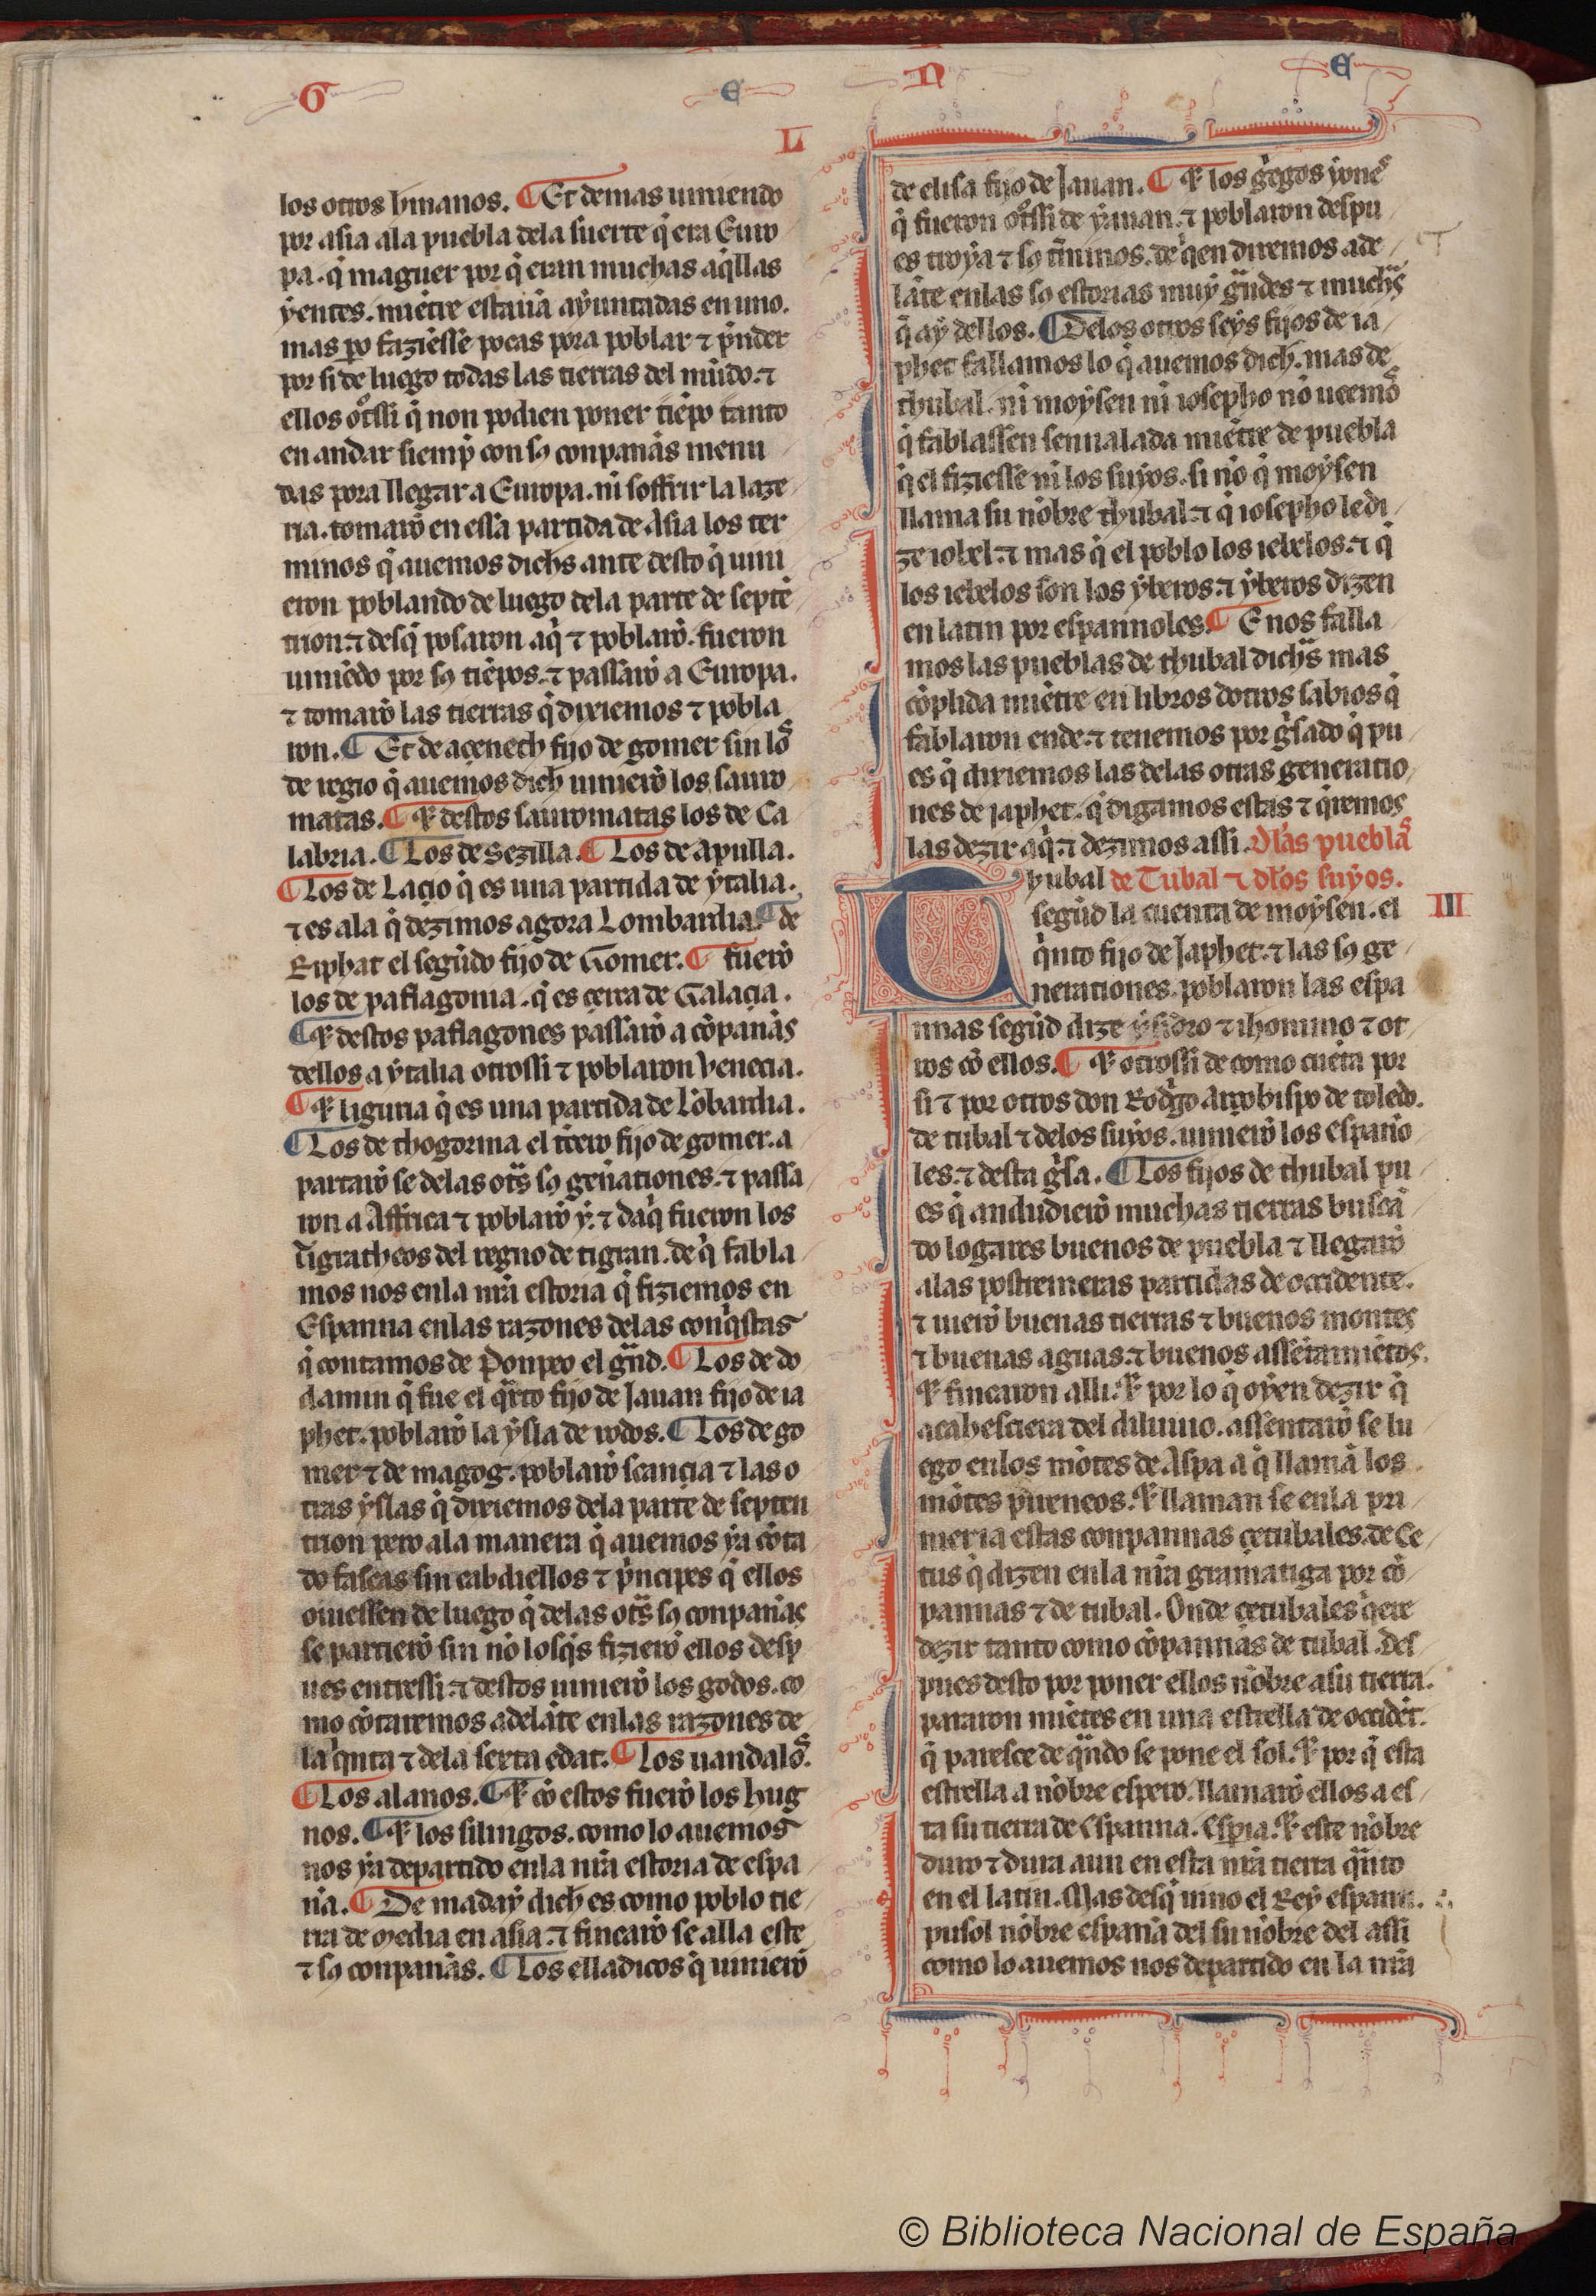 G E N E
L
los otros hmanos. Et demas uiniendo
por asia ala puebla dela suerte q̃ era Euro
pa. q̃ maguer por q̃ eran muchas aq̃llas
yentes. miẽtre estauã ayuntadas en uno.
mas po faziẽsse pocas pora poblar ⁊ p̃nder
por si de luego todas las tierras del mũdo. ⁊
ellos otssi q̃ non podien poner tiẽpo tanto
en andar siemp̃ con ss conpanãs menu
das pora llegar a Europa. ni soffrir la laze
ria. tomarõ en essa partida de Asia los ter
minos q̃ auemos dichs ante desto q̃ uini
eron poblando de luego dela parte de septẽ
trion. ⁊ desq̃ posaron aq̃ ⁊ poblarõ. fueron
uiniẽdo por ss tiẽpos. ⁊ passarõ a Europa.
⁊ tomarõ las tierras q̃ dixiemos ⁊ pobla
ron. Et de acenech fijo de gomer sin los
de regio q̃ auemos dich uinierõ los sauro
matas. ⁊ destos sauromatas los de Ca
labria. Los de Sezilla. Los de Apulla.
Los de Lacio q̃ es una partida de ytalia.
⁊ es ala q̃ dezimos agora Lombardia. de
Riphat el segũdo fijo de Gomer. fuerõ
los de paflagonia. q̃ es cerca de Galacia.
⁊ destos paflagones passarõ a cõpanãs
dellos a ytalia otrossi ⁊ poblaron Uenecia.
⁊ liguria q̃ es una partida de Lõbardia.
Los de thogorma el tc̃ero fijo de gomer. a
partarõ se delas ot̃s ss gen̄ationes. ⁊ passa
ron a Affrica ⁊ poblarõ y. ⁊ daq̃ fueron los
tigratheos del regno de tigran. de q̃ fabla
mos nos enla nr̃a estoria q̃ fiziemos en
Espanna enlas razones delas conq̃stas
q̃ contamos de Ponpeo el gñd. Los de do
damin q̃ fue el q̃rto fijo de Jauan fijo de ia
phet. poblarõ la ysla de rodos. Los de go
mer ⁊ de magog. poblarõ scancia ⁊ las o
tras yslas q̃ dixiemos dela parte de septen
trion pero ala manera q̃ auemos ya cõta
do fascas sin cabdiellos ⁊ p̃ncipes q̃ ellos
ouiessen de luego q̃ delas ot̃s ss conpanãs
se partierõ sin nõ losq̃s fizierõ ellos desp
ues entressi. ⁊ destos uinierõ los godos. co
mo cõtaremos adelãte enlas razones de
la q̃nta ⁊ dela sexta edat. Los uandalos.
Los alanos. ⁊ cõ estos fuerõ los hug
nos. ⁊ los silingos. como lo auemos
nos ya departido enla nr̃a estoria de espa
ña. De maday dich es como poblo tie
rra de Media en asia. ⁊ fincarõ se alla este
⁊ ss conpanãs. Los elladicos q̃ uinierõ
de elisa fijo de Jauan. ⁊ los gẽgos yones
q̃ fueron otssi de yauan. ⁊ poblaron despu
es troya ⁊ ss t̃minos. de q̃en diremos ade
lãte enlas ss estorias muy gñdes ⁊ muchs
q̃ ay dellos. Delos otros seys fijos de ia
phet fallamos lo q̃ auemos dich. mas de
thubal. ni moysen ni iosepho nõ ueemos
q̃ fablassen sennalada miẽtre de puebla
q̃ el fiziesse ni los suyos. si nõ q̃ moysen
llama su nõbre thubal. ⁊ q̃ iosepho le di
ze iobel. ⁊ mas q̃ el poblo los iebelos. ⁊ q̃
los iebelos son los yberos. ⁊ yberos dizen
en latin por espannoles. E nos falla
mos las pueblas de thubal dichs mas
cõplida miẽtre en libros dotros sabios q̃
fablaron ende. ⁊ tenemos por gĩsado q̃ pu
es q̃ dixiemos las delas otras generatio
nes de japhet. q̃ digamos estas ⁊ q̃remos
las dezir aq̃. ⁊ dezimos assi. Dlas pueblas
Thubal de Tubal ⁊ dlos suyos.
segũd la cuenta de moysen. el III
q̃nto fijo de Japhet. ⁊ las ss ge
nerationes. poblaron las espa
nnas segũd dize ysidro ⁊ ihonimo ⁊ ot
ros cõ ellos. ⁊ otrossi de como cuẽta por
si ⁊ por otros don Rodgo Arcobispo de toledo.
de tubal ⁊ delos suyos. uinierõ los espano
les. ⁊ desta gĩsa. Los fijos de thubal pu
es q̃ andudierõ muchas tierras buscã
do logares buenos de puebla ⁊ llegarõ
alas postremeras partidas de occidente.
⁊ uierõ buenas tierras ⁊ buenos montes
⁊ buenas aguas. ⁊ buenos assẽtamiẽtos.
⁊ fincaron alli. ⁊ por lo q̃ oyen dezir q̃
acahesciera del diluuio. assentarõ se lu
ego enlos mõtes de Aspa a q̃ llamã los
mõtes pireneos. ⁊ llaman se enla pri
meria estas conpannas cetubales. de Ce
tus q̃ dizen enla nr̃a gramatiga por cõ
pannas ⁊ de tubal. Onde cetubales q̃ere
dezir tanto como cõpannãs de tubal. Des
pues desto por poner ellos nõbre asu tierra.
pararon miẽtes en una estrella de occidẽt.
q̃ paresce de q̃ndo se pone el sol. ⁊ por q̃ esta
estrella a nõbre espero. llamarõ ellos a es
ta su tierra de Espanna. Esperia. ⁊ este nõbre
duro ⁊ dura aun en esta nr̃a tierra q̃nto
en el latin. Mas desq̃ uino el Rey espann.
pusol nõbre espanã del su nõbre del assi
como lo auemos nos departido en la nr̃a
© Biblioteca Nacional de España